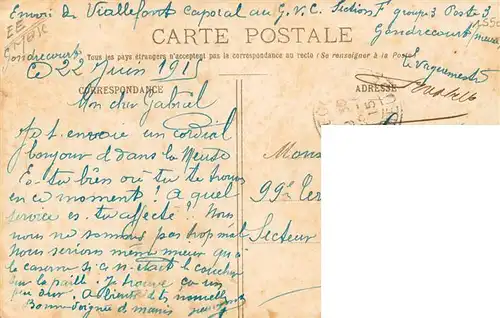 Envoi de Viallefont Caporal au G.V.C. Section F groupe 3 Poste 3
Gondrecourt (Meuse
CARTE POSTALE
Tous les pays étrangers n'acceptent pas la correspondance au recto (Se renseigner à la Poste)
Gondrecourt
Ce 22 Juin 1915
Le Vaguemestre
CORRESPONDANCE
ADRESSE
Mon cher Gabriel
Je t'envoie un cordial
bonjour d dans la Meuse
Es-tu bien où tu te trouves
en ce moment? A quel
service es-tu affecté? Nous
nous ne sommes pas trop mal
Nous serions même mieux qu'à
la caserne si ce n'était le coucher
sur la paille. Je trouve ça un
peu dur. A bientôt de tes nouvelles
Bonne poignée de mains
Mons
99e Ter
Secteur